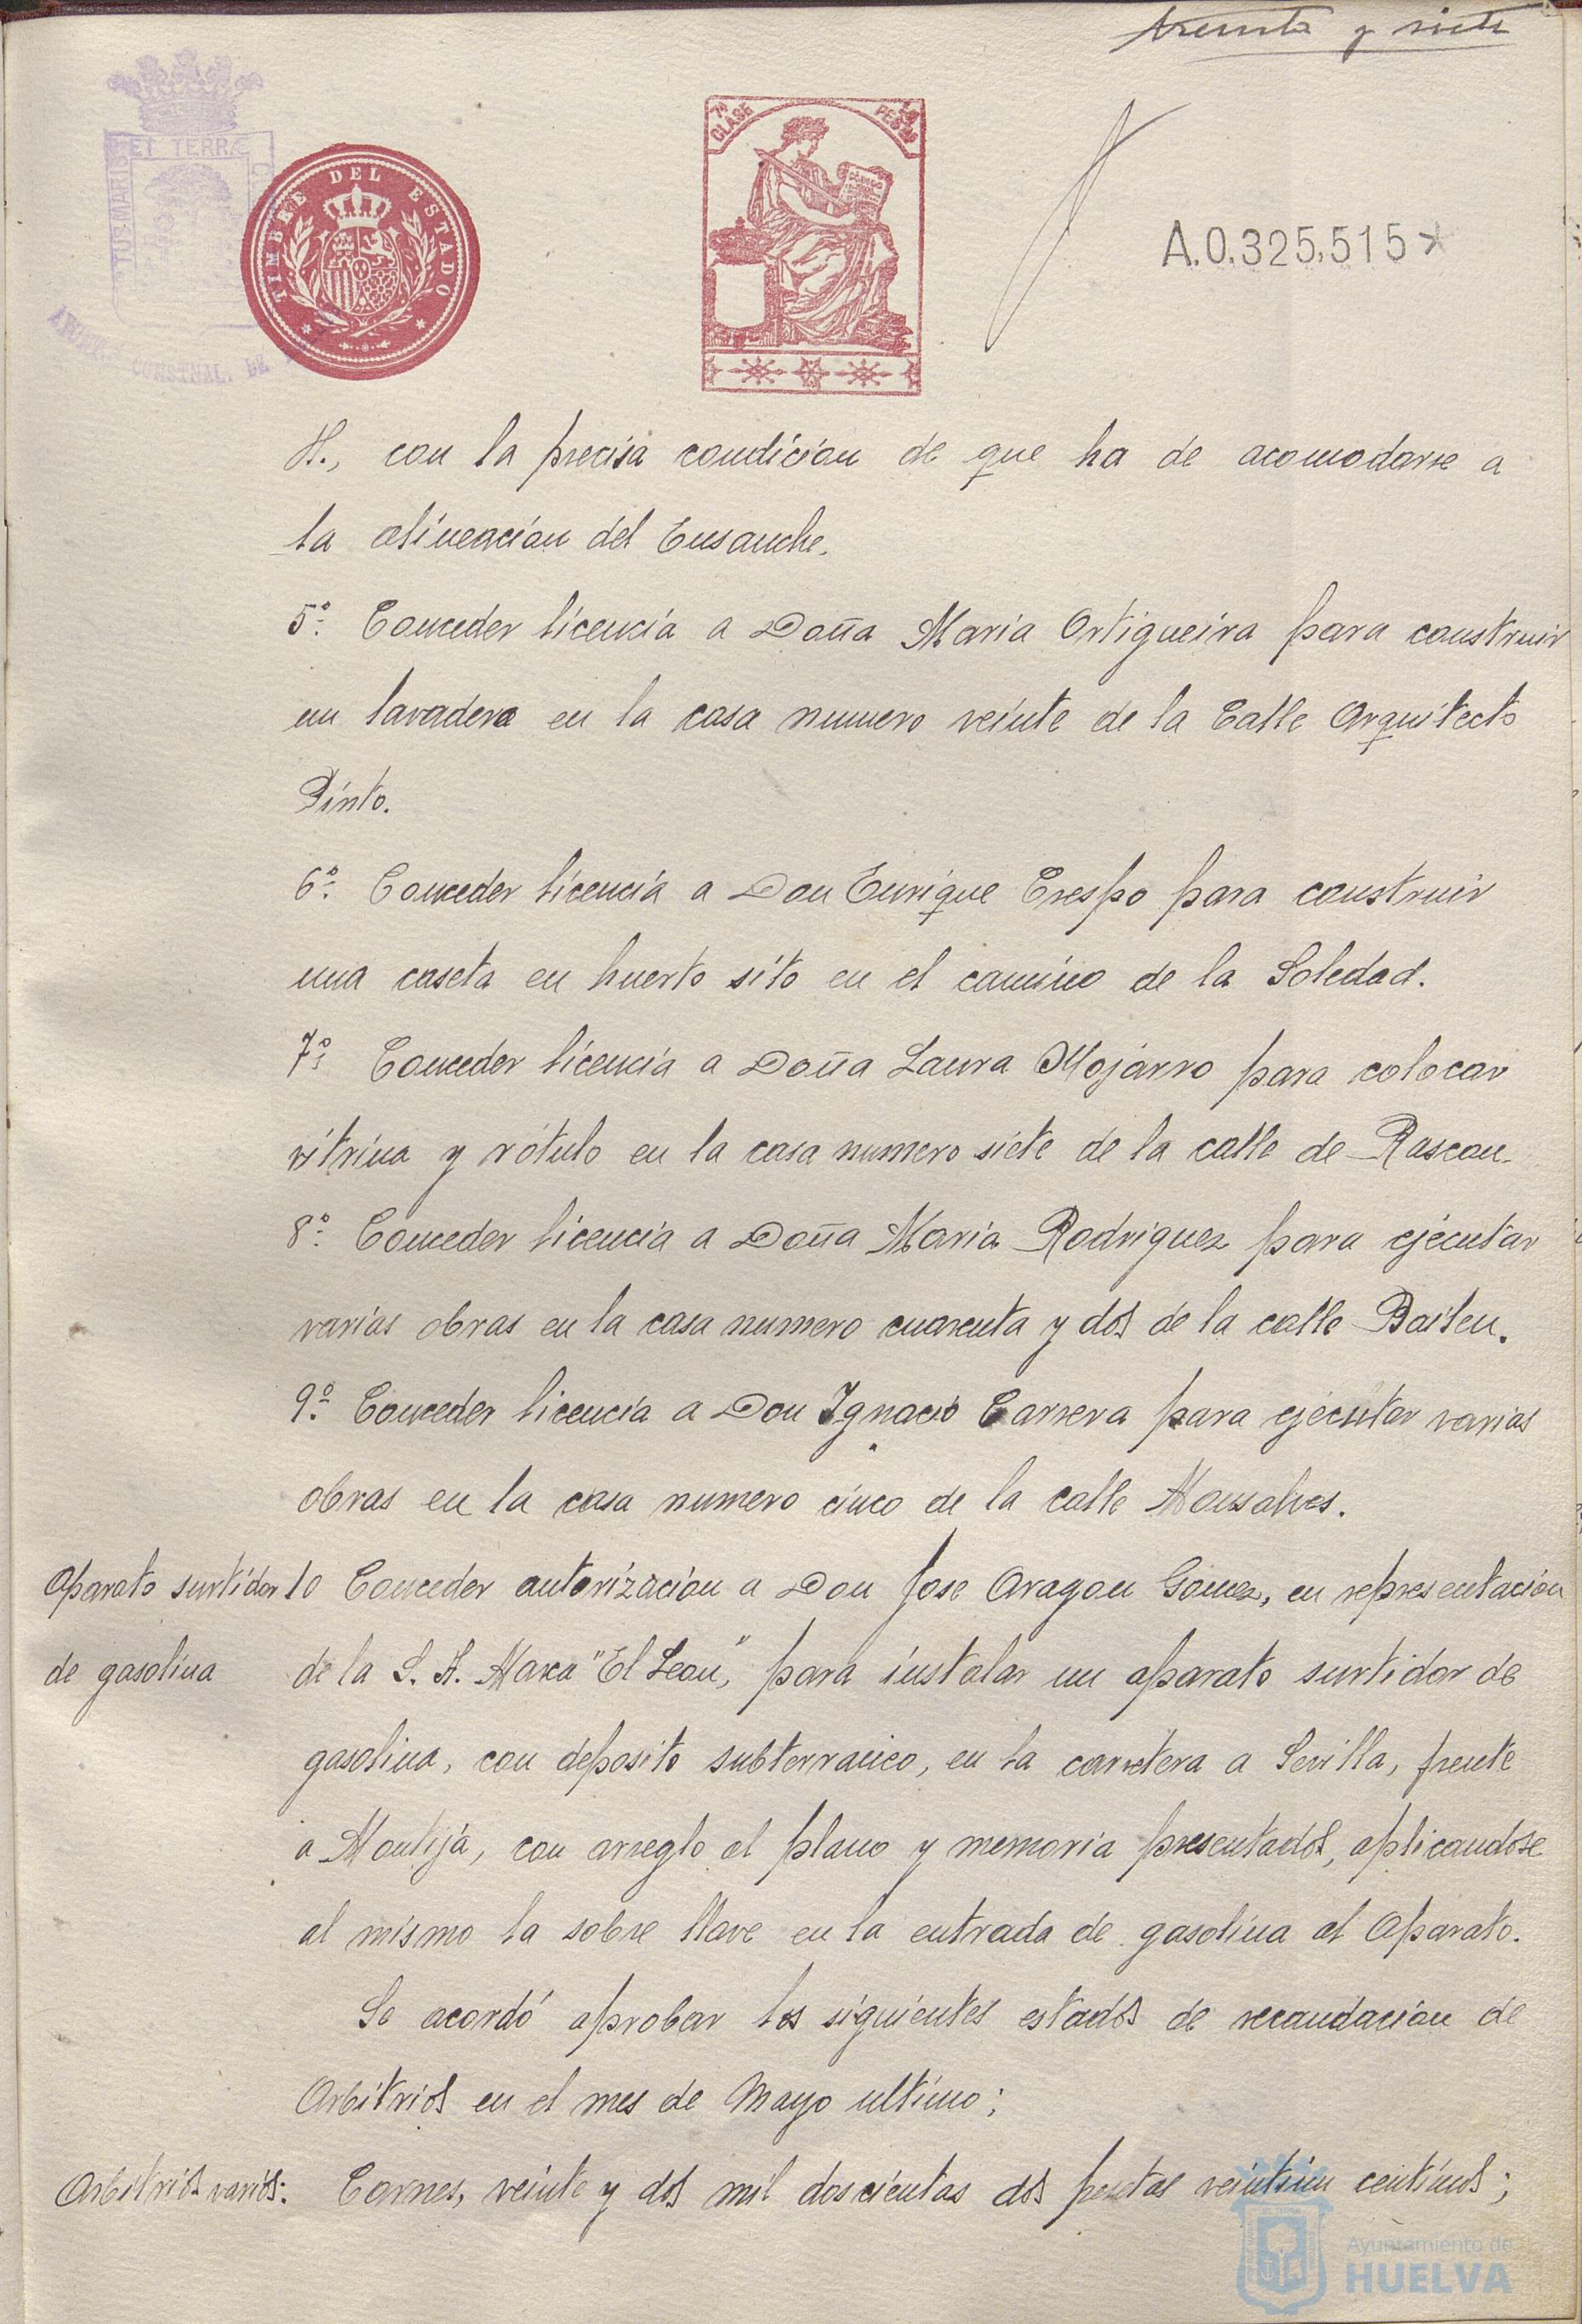 Treinta y siete
ET TERRÆ
TUS MARIS
TIMBRE DEL ESTADO
7ª CLASE
A.0.325.515*
H., con la precisa condicion de que ha de acomodarse a
la alineacion del Ensanche.
5º. Conceder licencia a Doña Maria Ortigueira para construir
un lavadero en la casa numero veinte de la Calle Arquitecto
Pinto.
6º. Conceder licencia a Don Enrique Crespo para construir
una caseta en huerto sito en el camino de la Soledad.
7º. Conceder licencia a Doña Laura Mojarro para colocar
vitrina y rótulo en la casa numero siete de la calle de Rascon.
8º. Conceder licencia a Doña Maria Rodriguez para ejecutar
varias obras en la casa numero cuarenta y dos de la calle Bailen.
9º. Conceder licencia a Don Ignacio Carrera para ejecutar varias
obras en la casa numero cinco de la calle Monsalves.
Aparato surtidor 10 Conceder autorizacion a Don Jose Aragon Gomez, en representacion
de gasolina de la S. A. Marca "El Leon", para instalar un aparato surtidor de
gasolina, con deposito subterraneo, en la carretera a Sevilla, frente
a Montija, con arreglo al plano y memoria presentados, aplicandose
al mismo la sobre llave en la entrada de gasolina al Aparato.
Se acordó aprobar los siguientes estados de recaudacion de
Arbitrios en el mes de Mayo ultimo;
Arbitrios varios. Carnes, veinte y dos mil doscientas dos pesetas veintiun centimos;
Ayuntamiento de
HUELVA